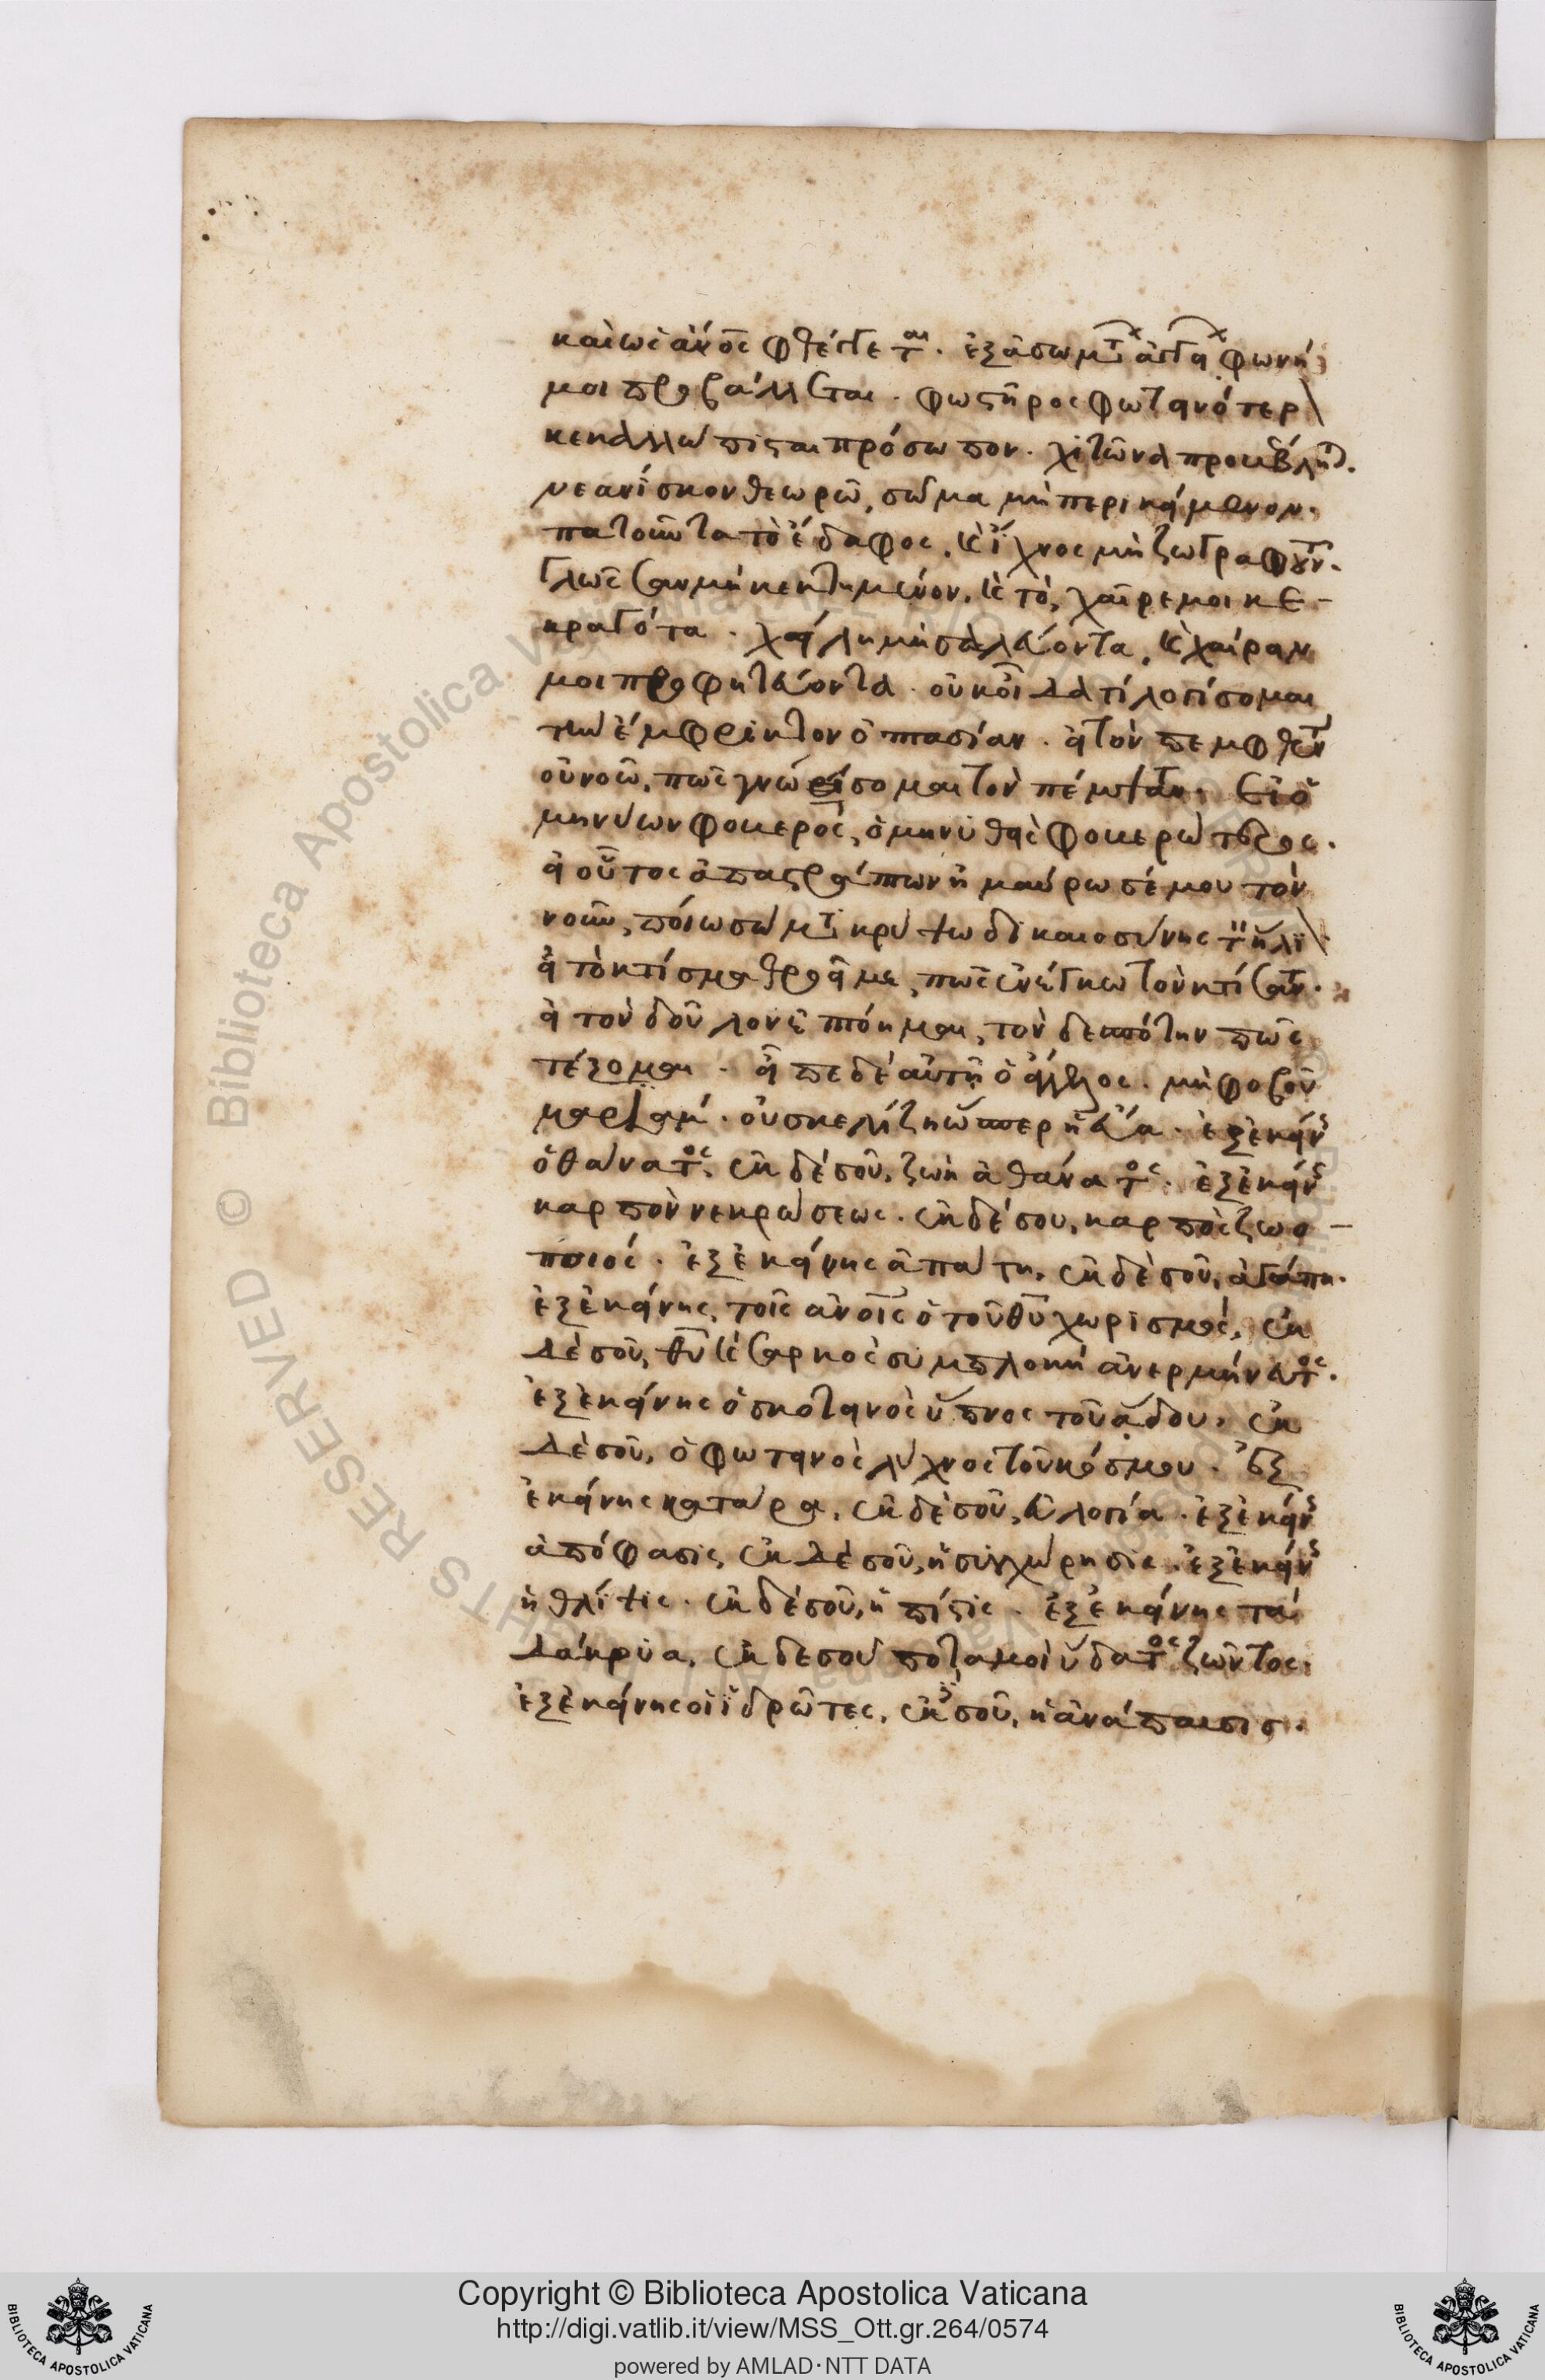 καὶ ὡς ἄνος φθέγγεται. ἐξ ἀσωμάτων ἀγγείων φωνή
μοι προβάλλεται. φωστῆρος φωτεινότερον
κεκαλλώπισται πρόσωπον. χιτῶνα προκυβλη
νεανίσκον θεωρῶ, σῶμα μὴ περικείμενον.
πατοῦντα τὸ ἔδαφος, καὶ ἴχνος μὴ ζωγραφοῦντα.
γλῶσσαν μὴ κεκτημένον, καὶ τό, χαῖρε μοι κε-
κραγότα. χείλη μὴ σαλεύοντα, καὶ χαίρειν
μοι προφητεύοντα. οὐκ οἶδα τί λογίσομαι
τὴν ἔμφρικτον ὀπτασίαν. εἰ τὸν πεμφθέντα
οὐ νοῶ, πῶς γνωρίσομαι τὸν πέμψαντα. εἰ ὁ
μηνύων φοβερός, ὁ μηνυθεὶς φοβερώτερος.
εἰ οὗτος ὁ παστράπων ἠμαύρωσέ μου τὸν
νοῦν, ποίω σώματι κρύψω δικαιοσύνης τὸν ἥλιον
εἰ τὸ κτίσμα θροεῖ με, πῶς ἐνέγκω τὸν κτίσαντα.
εἰ τὸν δοῦλον ἐπτόημαι, τὸν δεσπότην πῶς
τέξομαι. εἶπε δὲ αὐτῇ ὁ ἄγγελος. μὴ φοβοῦ
μαριάμ. οὐ σκελίζῃ ὥσπερ ἡ εὔα. ἐξ ἐκείνης
ὁ θάνατος, ἐκ δὲ σοῦ, ζωὴ ἀθάνατος. ἐξ ἐκείνης
καρπὸν νεκρώσεως. ἐκ δὲ σου, καρπὸς ζωο-
ποιός. ἐξ ἐκείνης ἀπάτη, ἐκ δὲ σοῦ, ἀγάπη.
ἐξ ἐκείνης, τοῖς ἀνοῖς ὁ τοῦ θῦ χωρισμός, ἐκ
δὲ σοῦ, θῦ καὶ σαρκὸς συμπλοκὴ ἀνερμήνευτος.
ἐξ ἐκείνης ὁ σκοτεινὸς ὕπνος τοῦ ἅδου, ἐκ
δὲ σοῦ, ὁ φωτεινὸς λύχνος τοῦ κόσμου. ἐξ
ἐκείνης κατάρα, ἐκ δὲ σοῦ, εὐλογία. ἐξ ἐκείνης
ἀπόφασις, ἐκ δὲ σοῦ, ἡ συγχώρησις. ἐξ ἐκείνης
ἡ θλίψις. ἐκ δὲ σοῦ, ἡ πίστις. ἐξ ἐκείνης τὰ
δάκρυα, ἐκ δὲ σοῦ ποταμοὶ ὕδατος ζῶντος.
ἐξ ἐκείνης οἱ ἱδρῶτες, ἐκ δὲ σοῦ, ἡ ἀνάπαυσις.
Biblioteca Apostolica Vaticana
RIGHTS RESERVED ©
Copyright © Biblioteca Apostolica Vaticana
http://digi.vatlib.it/view/MSS_Ott.gr.264/0574
powered by AMLAD·NTT DATA
BIBLIOTECA APOSTOLICA VATICANA
BIBLIOTECA APOSTOLICA VATICANA